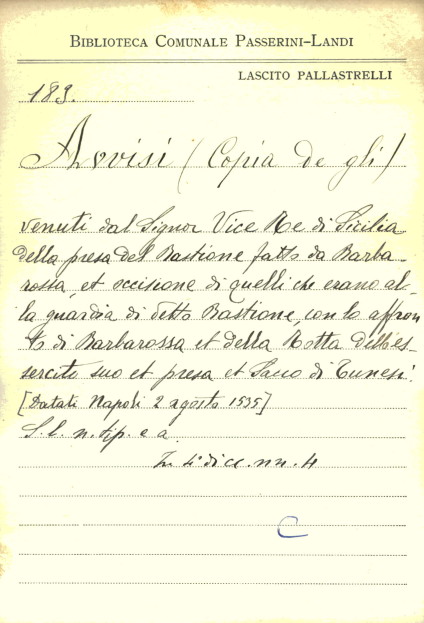 BIBLIOTECA COMUNALE PASSERINI-LANDI
LASCITO PALLASTRELLI
189.
Avvisi (Copia de gli)
venuti dal Signor Vice Re di Sicilia
della presa del Bastione fatto da Barba-
rossa, et occisione di quelli che erano al-
la guardia di detto Bastione, con lo affron
to di Barbarossa et della Rotta dell'es-
sercito suo et presa et Sacco di Tunesi.
[Datati Napoli 2 agosto 1535]
S. l. n. tip. e a.
In 4° di cc. nn. 4
C